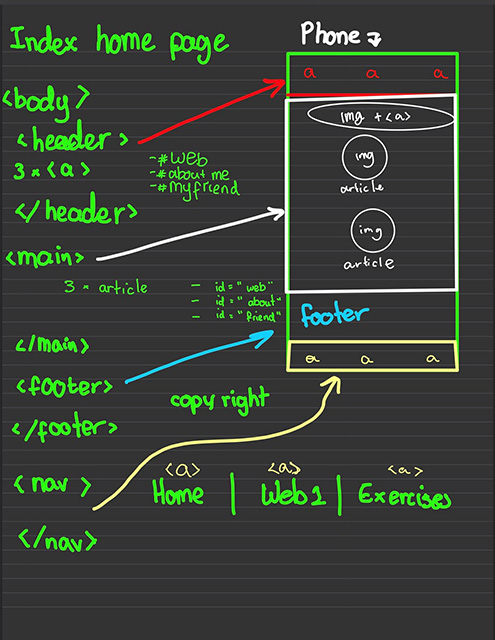 Index home page
Phone
a a a
<body>
<header>
3 × <a>
-#web
-#about me
-#myfriend
</header>
img + <a>
img
article
img
article
<main>
3 × article
- id = "web"
- id = "about"
- id = "friend"
</main>
footer
a a a
<footer>
copy right
</footer>
<nav>
<a> <a> <a>
Home | Web1 | Exercises
</nav>